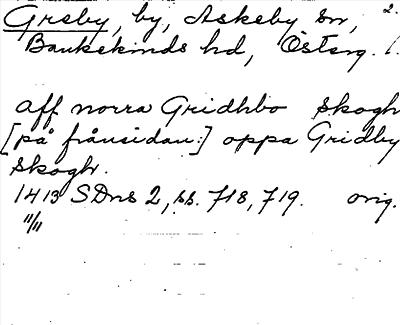 Gresby, by, Askeby sn, 2.
Bankekinds hd, Österg. 1.
aff norra Gridhbo skogh
[på frånsidan:] oppa Gridby
skogh.
1413 SDns 2, ss. 718, 719. orig.
11/11